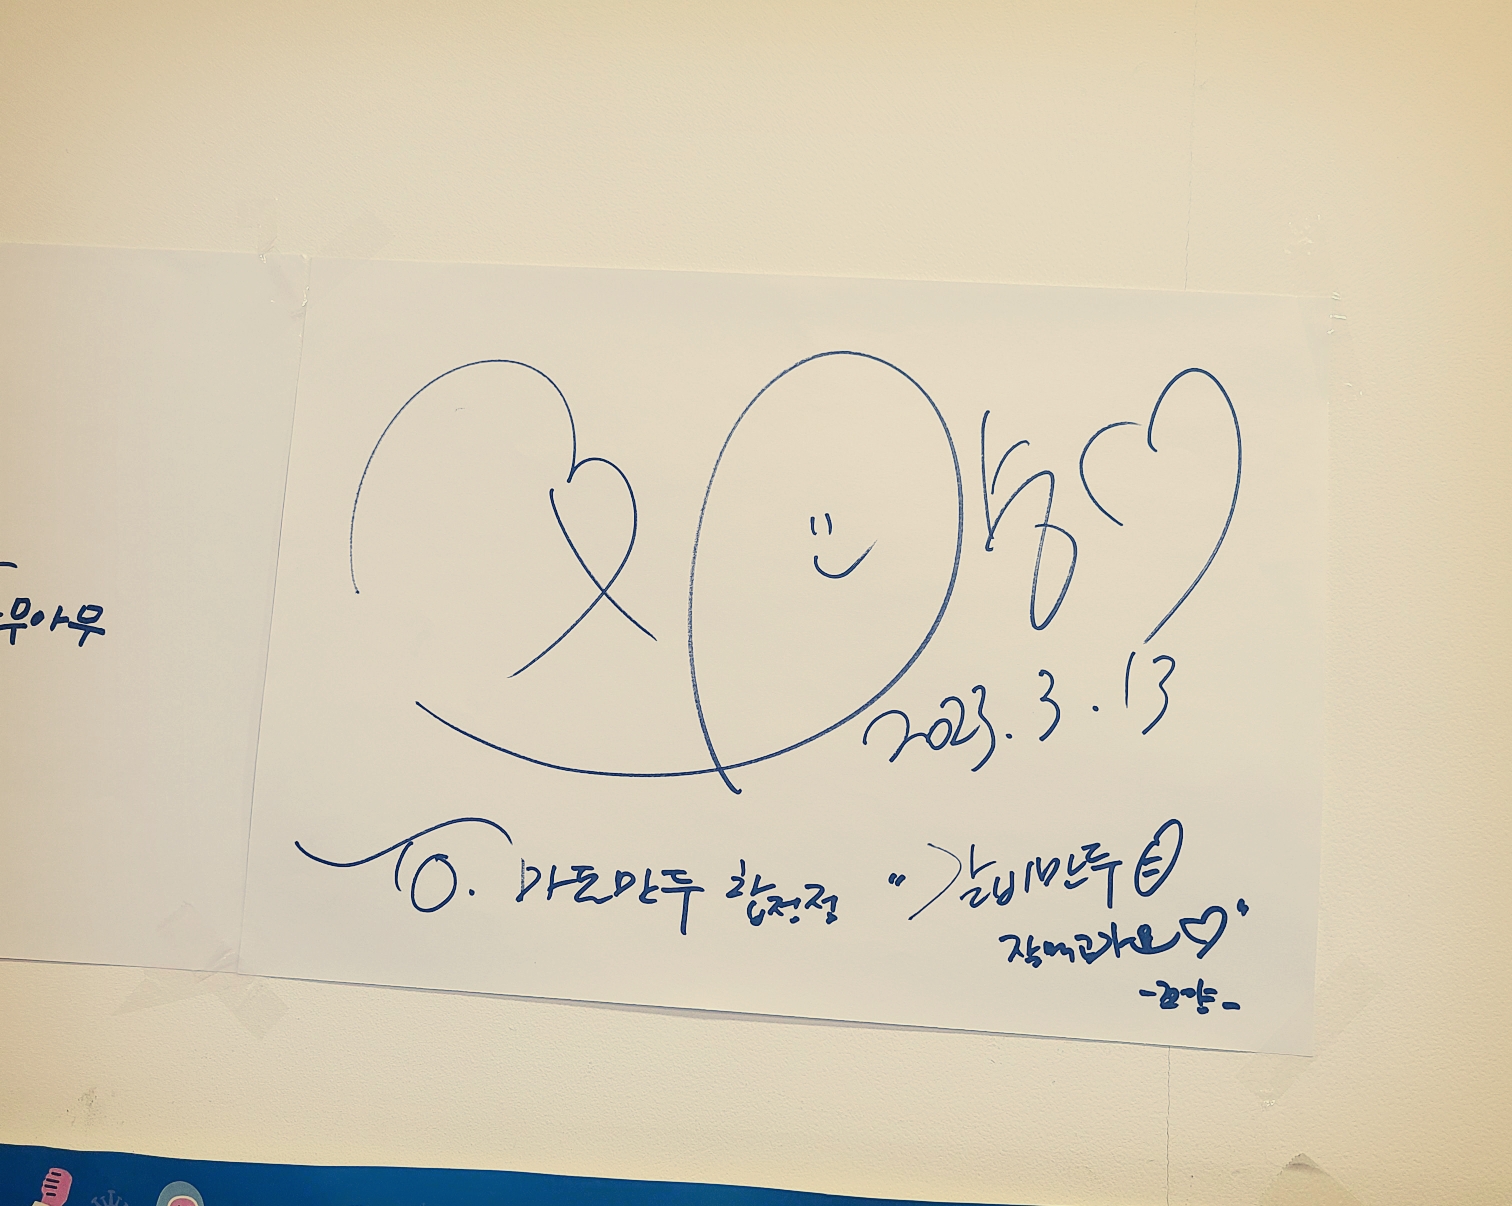 우아우
2023. 3. 13
To. 가도만두 합정점 "갈비만두
잘먹고가요♡"